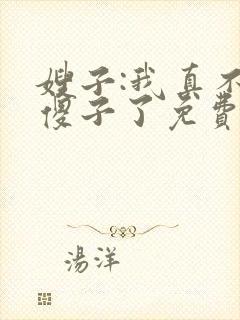 嫂子:我真不
傻子了免費
湯洋